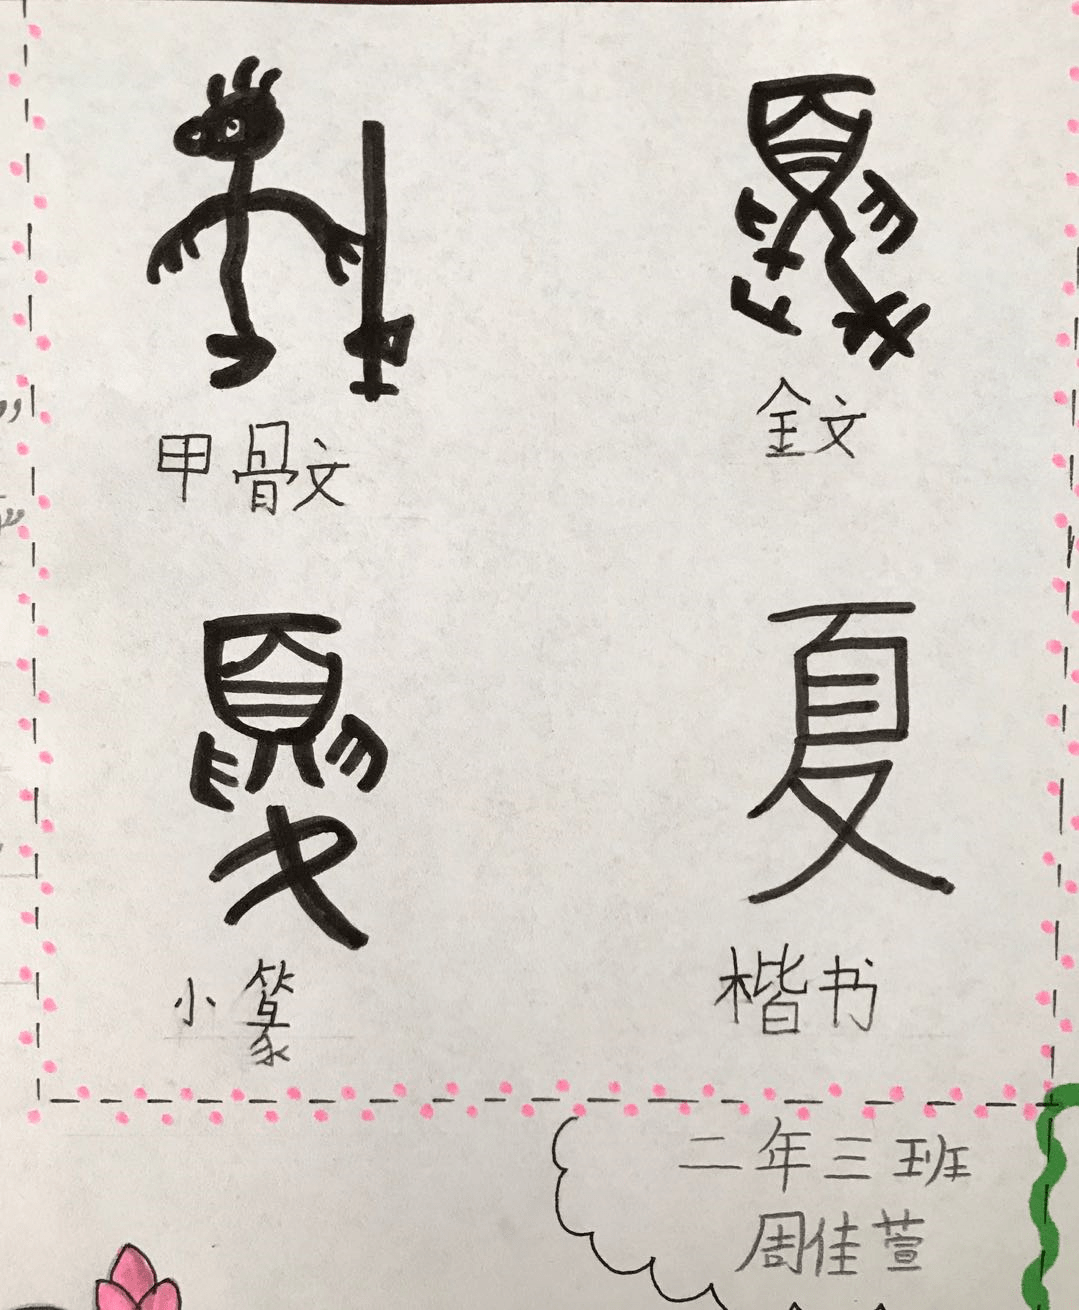 甲骨文
金文
小篆
夏
楷书
二年三班
周佳萱